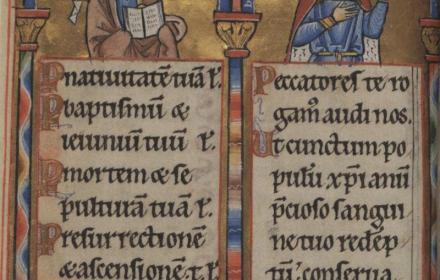 P nativitatē tuā l̓.
P baptismū &
ieiuniū tuū l̓.
P mortem & se
pulturā tuā l̓.
P resurrectionē
& ascensionē t. l̓.
Peccatores te ro
gam̓ audi nos.
Ut cunctum po
pulū xp̄ianū
p̄cioso sangui
ne tuo redēp
tū conserva